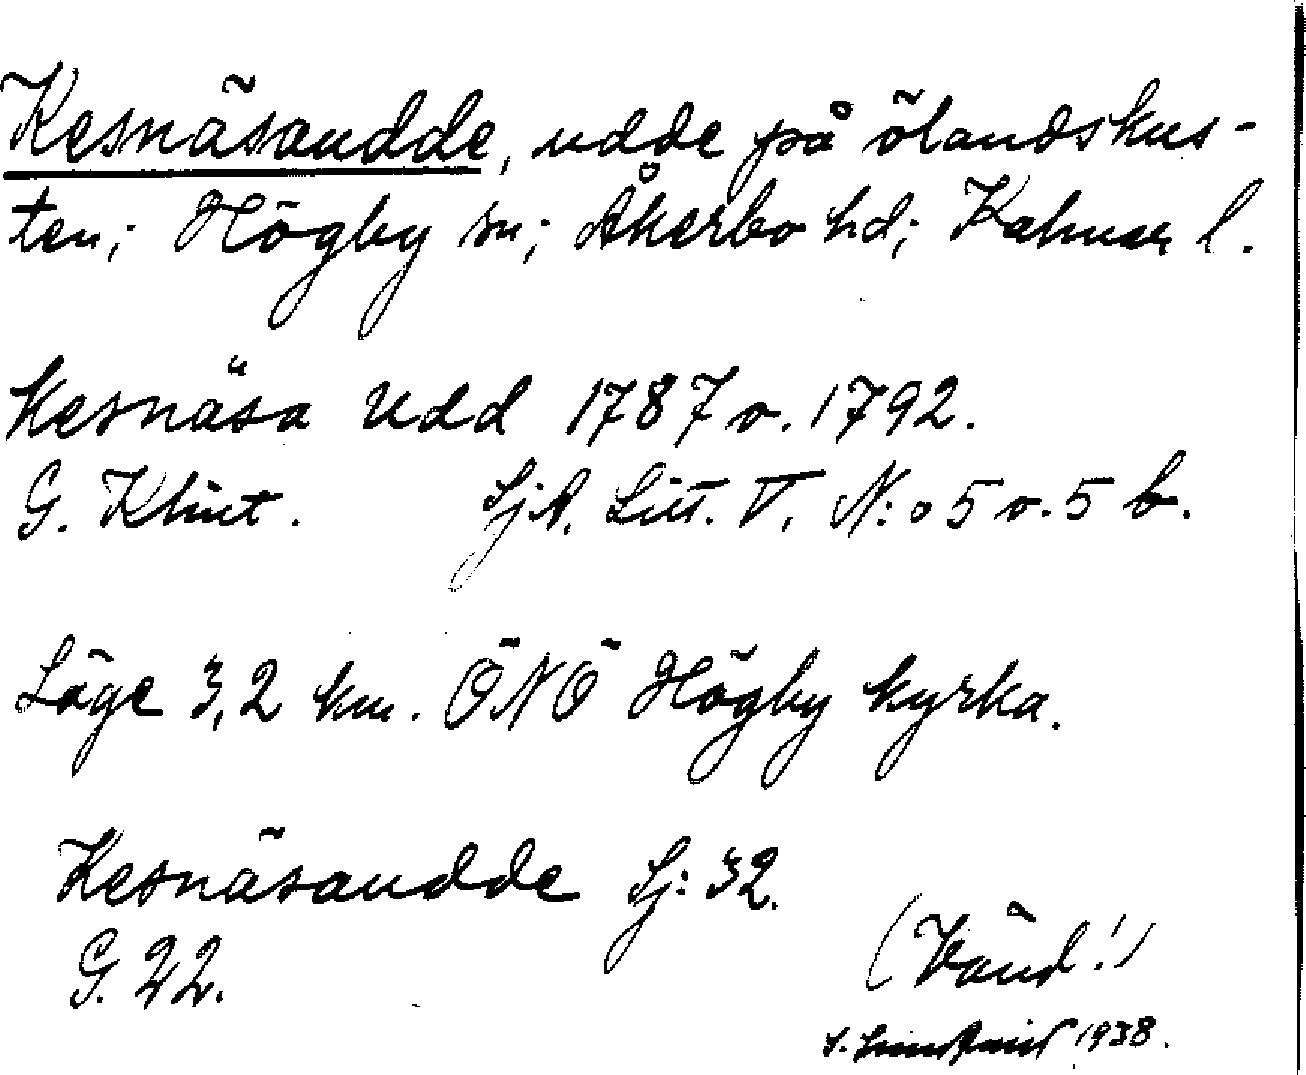 Kesnäsaudde, udde på ölandskus-
ten; Högby sn; Åkerbo hd; Kalmar l.
Kesnäsa Udd 1787 o. 1792.
G. Klint. SjA. Litt. V, N:o 5 o. 5 b.
Läge 3,2 km. ÖNÖ Högby kyrka.
Kesnäsaudde Sj: 32.
G. 22.
(Vänd!)
S. 1938.